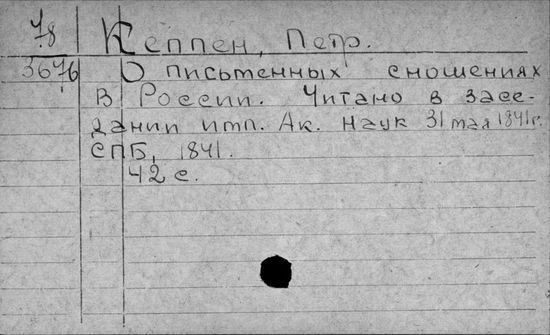 78 Кеппен, Петр.
3676 О письменных сношениях
в России. Читано в засе-
дании имп. Ак. Наук 31 мая 1841 г.
СПБ, 1841.
42 с.